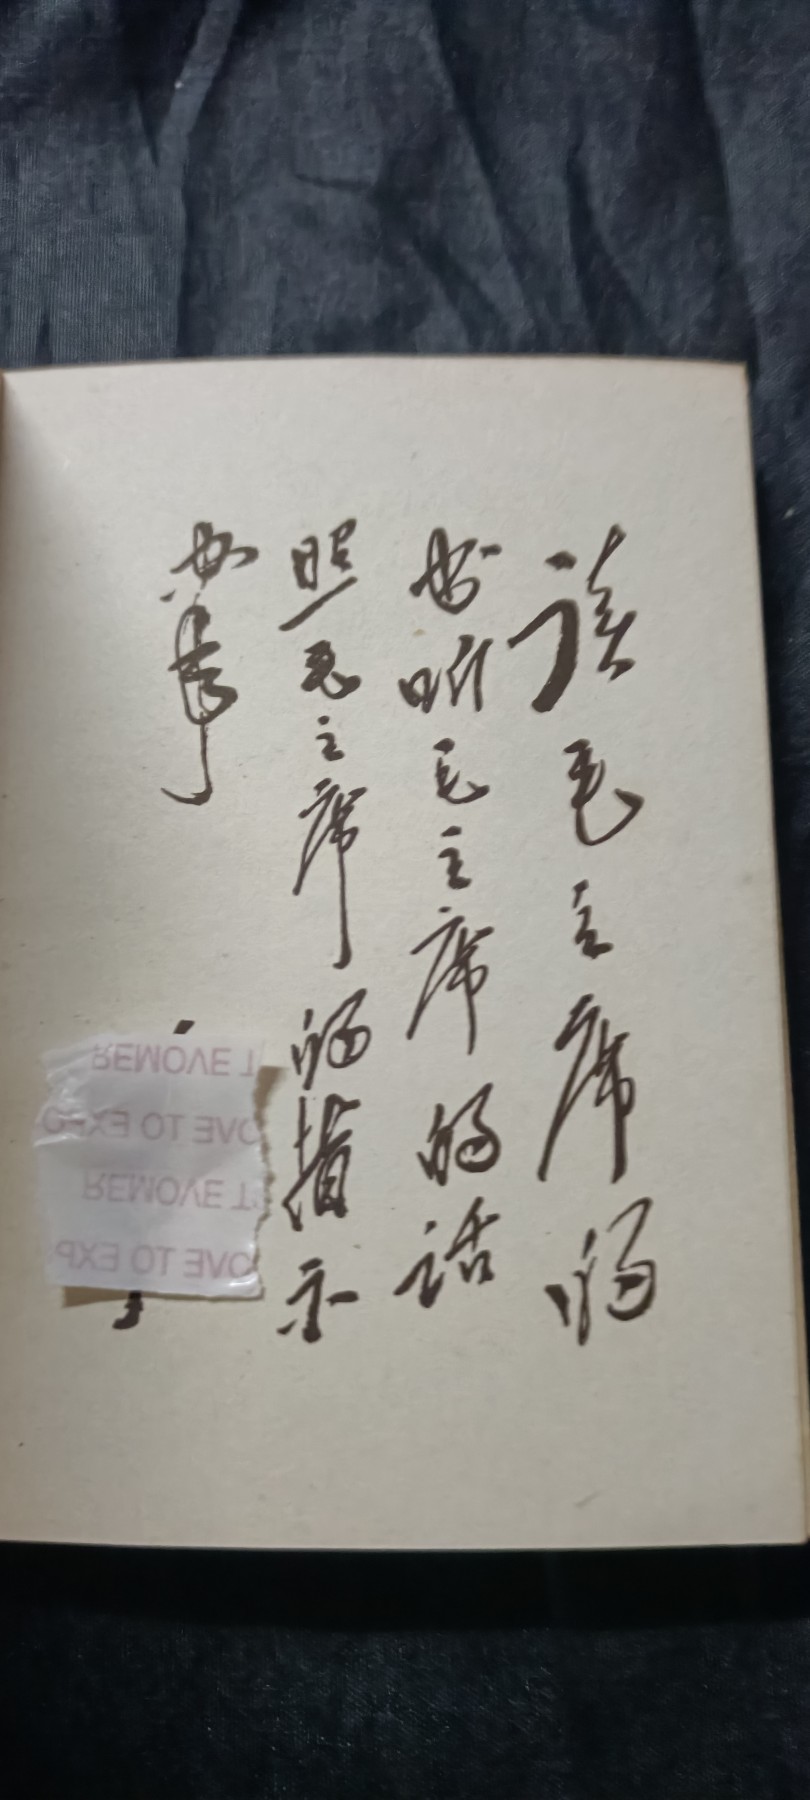 读毛主席的
书听毛主席的话
照毛主席的指示
办事
REMOVE T
EXP TO EVAC
REMOVE T
EXP TO EVAC